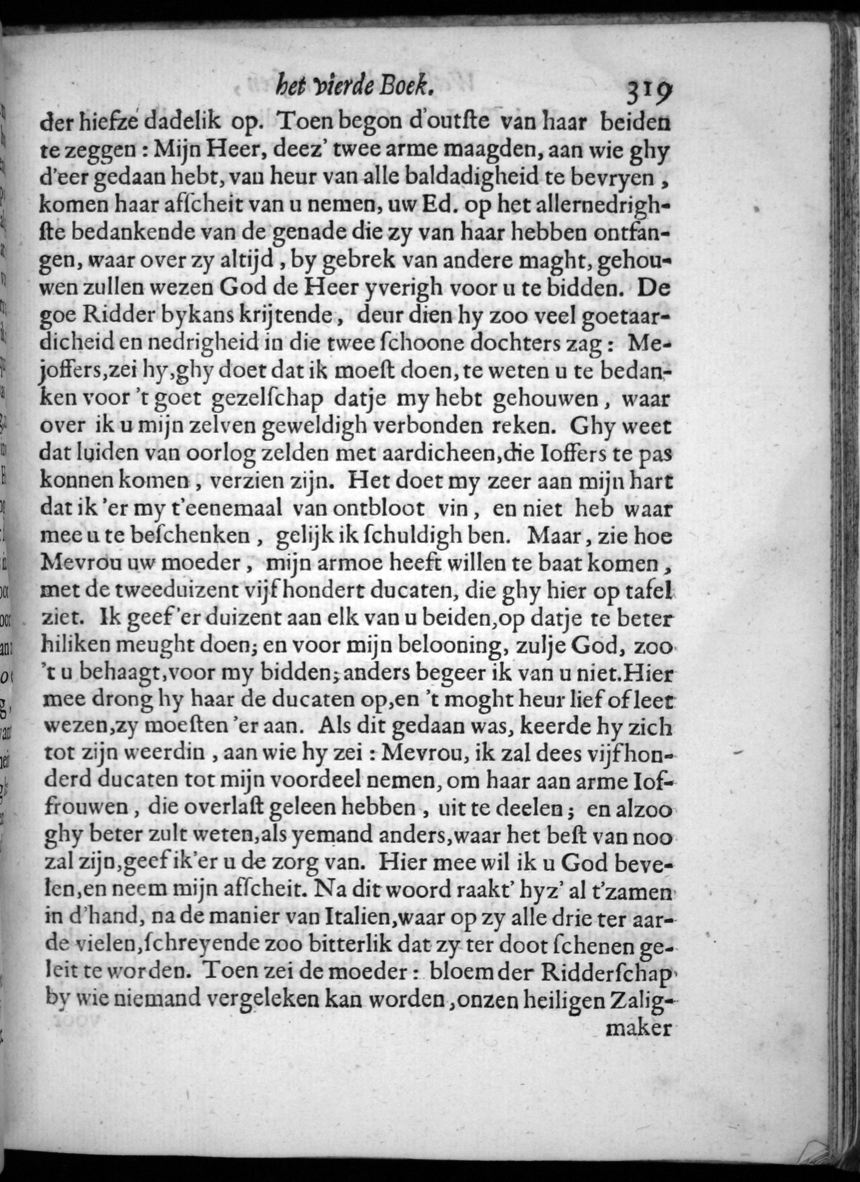 het vierde Boek. 319
der hiefze dadelik op. Toen begon d'outſte van haar beiden
te zeggen : Mijn Heer, deez' twee arme maagden, aan wie ghy
d'eer gedaan hebt, van heur van alle baldadigheid te bevryen ,
komen haar afſcheit van u nemen, uw Ed. op het allernedrigh-
ſte bedankende van de genade die zy van haar hebben ontfan-
gen, waar over zy altijd , by gebrek van andere maght, gehou-
wen zullen wezen God de Heer yverigh voor u te bidden. De
goe Ridder bykans krijtende , deur dien hy zoo veel goetaar-
dicheid en nedrigheid in die twee ſchoone dochters zag : Me-
joffers,zei hy,ghy doet dat ik moeſt doen, te weten u te bedan-
ken voor 't goet gezelſchap datje my hebt gehouwen , waar
over ik u mijn zelven geweldigh verbonden reken. Ghy weet
dat luiden van oorlog zelden met aardicheen,die Ioffers te pas
konnen komen , verzien zijn. Het doet my zeer aan mijn hart
dat ik 'er my t'eenemaal van ontbloot vin , en niet heb waar
mee u te beſchenken , gelijk ik ſchuldigh ben. Maar, zie hoe
Mevrou uw moeder , mijn armoe heeft willen te baat komen ,
met de tweeduizent vijf hondert ducaten, die ghy hier op tafel
ziet. Ik geef 'er duizent aan elk van u beiden,op datje te beter
hiliken meught doen; en voor mijn belooning, zulje God, zoo
't u behaagt,voor my bidden; anders begeer ik van u niet.Hier
mee drong hy haar de ducaten op,en 't moght heur lief of leet
wezen,zy moeſten 'er aan. Als dit gedaan was, keerde hy zich
tot zijn weerdin , aan wie hy zei : Mevrou, ik zal dees vijfhon-
derd ducaten tot mijn voordeel nemen, om haar aan arme Iof-
frouwen , die overlaſt geleen hebben , uit te deelen ; en alzoo
ghy beter zult weten,als yemand anders,waar het beſt van noo
zal zijn,geef ik'er u de zorg van. Hier mee wil ik u God beve-
len,en neem mijn afſcheit. Na dit woord raakt' hyz' al t'zamen
in d'hand, na de manier van Italien,waar op zy alle drie ter aar-
de vielen,ſchreyende zoo bitterlik dat zy ter doot ſchenen ge-
leit te worden. Toen zei de moeder : bloem der Ridderſchap
by wie niemand vergeleken kan worden ,onzen heiligen Zalig-
maker